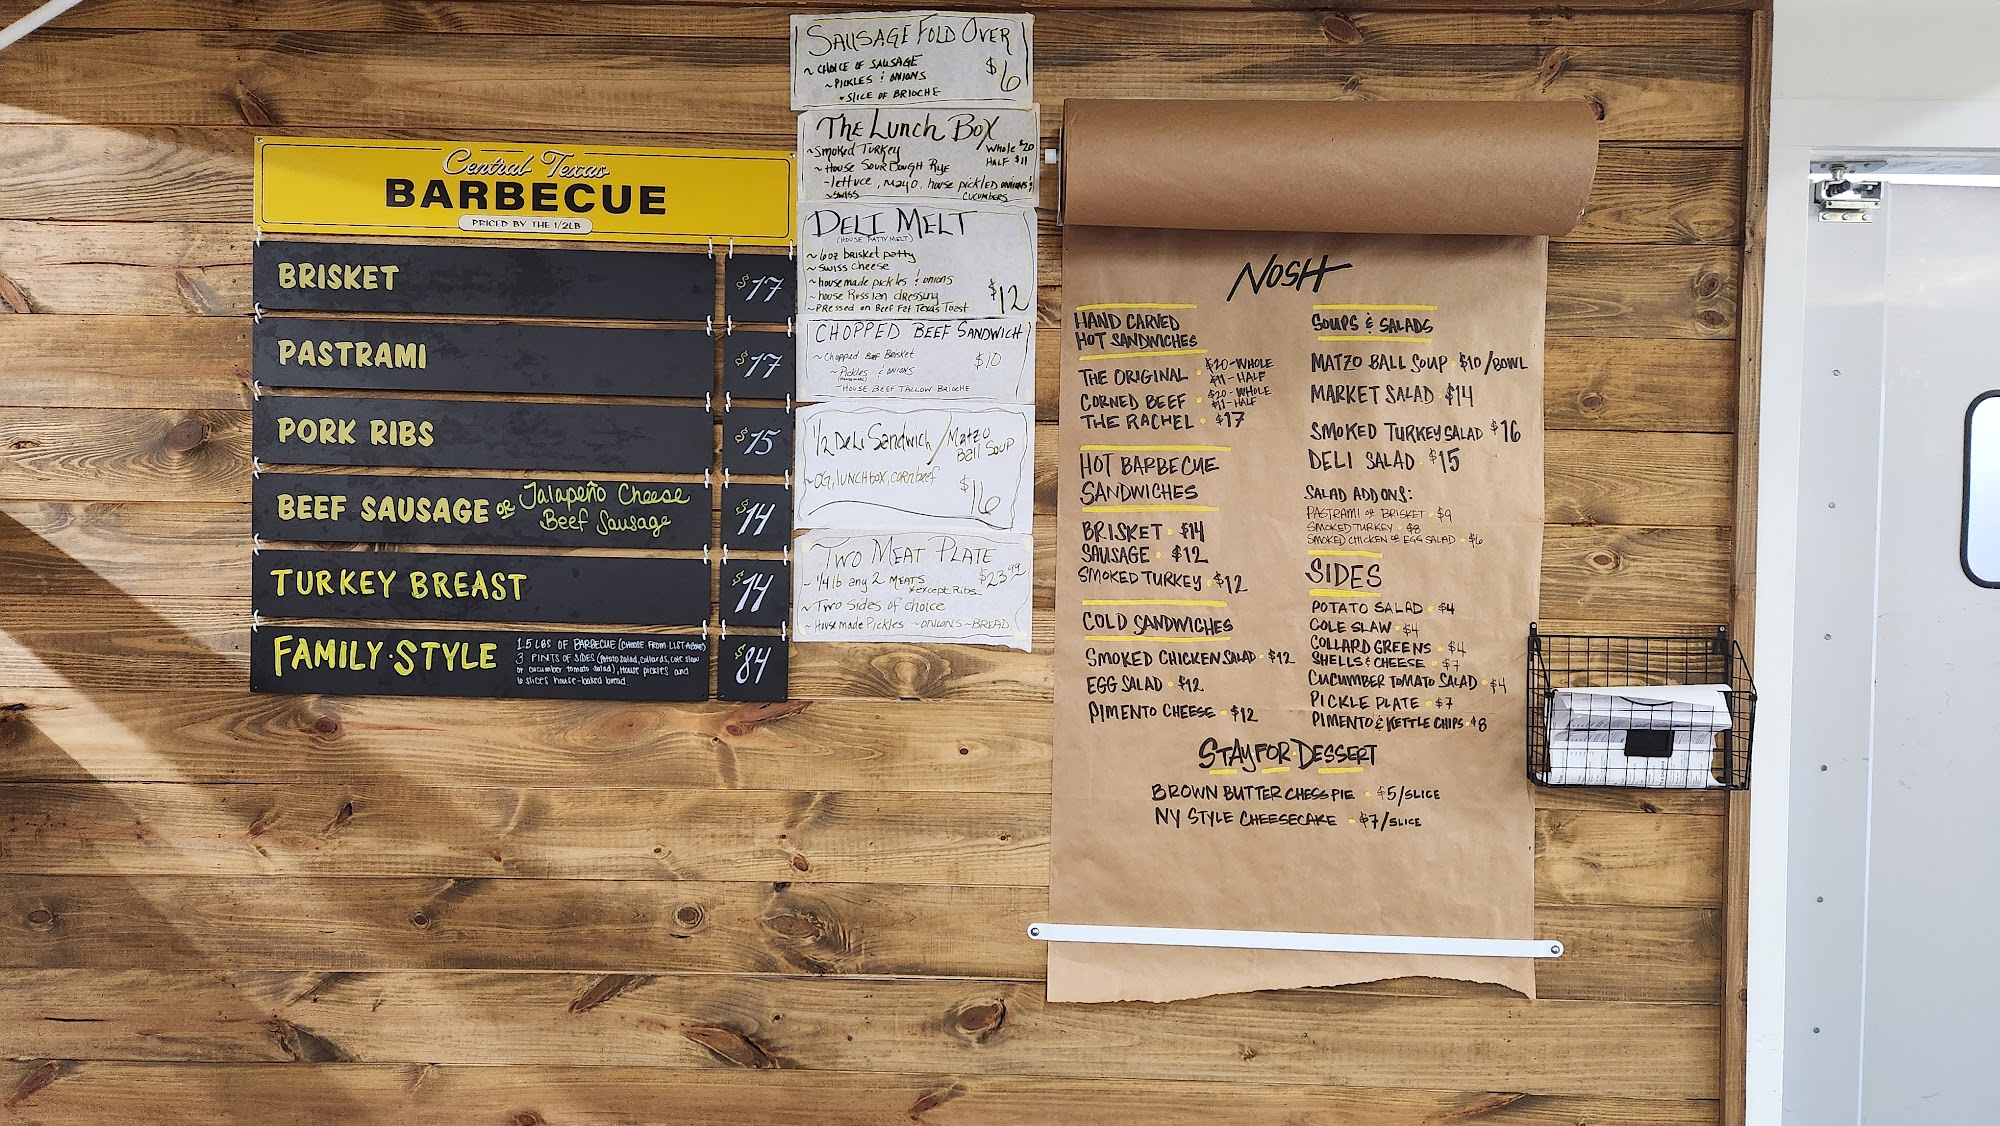 Central Texas
BARBECUE
PRICED BY THE 1/2LB
BRISKET $17
PASTRAMI $17
PORK RIBS $15
BEEF SAUSAGE OR Jalapeño Cheese
Beef Sausage
$14
TURKEY BREAST $14
FAMILY·STYLE
1.5 LBS OF BARBECUE (CHOOSE FROM LIST ABOVE)
3 PINTS OF SIDES (Potato Salad, Collards, Cole Slaw
or cucumber tomato salad), House pickles and
6 slices house-baked bread
$84
SAUSAGE FOLD OVER
~ CHOICE OF SAUSAGE
~ PICKLES & ONIONS
~ SLICE OF BRIOCHE
$6
THE LUNCH BOX
~ Smoked Turkey
Whole $20
HALF $11
~ HOUSE SOURDOUGH RYE
~ lettuce, mayo, house pickled onions &
~ SWISS CUCUMBERS
DELI MELT
(HOUSE PATTY MELT)
~ 6oz brisket patty
~ Swiss cheese
~ housemade pickles & onions
~ house Russian dressing
~ PRESSED on Beef Fat Texas Toast
$12
CHOPPED BEEF SANDWICH
~ Chopped Beef Brisket
$10
~ Pickles & onions
(housemade)
~ HOUSE BEEF TALLOW BRIOCHE
1/2 Deli Sandwich / Matzo
Ball Soup
~ OG, LUNCHBOX, corn beef
$16
TWO MEAT PLATE
~ 1/4 lb any 2 MEATS $23.99
*except Ribs
~ Two Sides of choice
~ House made Pickles ~ONIONS ~BREAD
NOSH
HAND CARVED
HOT SANDWICHES
THE ORIGINAL · $20-WHOLE
$11-HALF
CORNED BEEF · $20-WHOLE
$11-HALF
THE RACHEL · $17
HOT BARBECUE
SANDWICHES
BRISKET · $14
SAUSAGE · $12
SMOKED TURKEY · $12
COLD SANDWICHES
SMOKED CHICKEN SALAD · $12
EGG SALAD · $12
PIMENTO CHEESE · $12
SOUPS & SALADS
MATZO BALL SOUP · $10/BOWL
MARKET SALAD · $14
SMOKED TURKEY SALAD · $16
DELI SALAD · $15
SALAD ADD ONS:
PASTRAMI OR BRISKET · $9
SMOKED TURKEY · $8
SMOKED CHICKEN OR EGG SALAD · $6
SIDES
POTATO SALAD · $4
COLE SLAW · $4
COLLARD GREENS · $4
SHELLS & CHEESE · $7
CUCUMBER TOMATO SALAD · $4
PICKLE PLATE · $7
PIMENTO & KETTLE CHIPS · $8
STAY FOR DESSERT
BROWN BUTTER CHESS PIE · $5/SLICE
NY STYLE CHEESECAKE · $7/SLICE